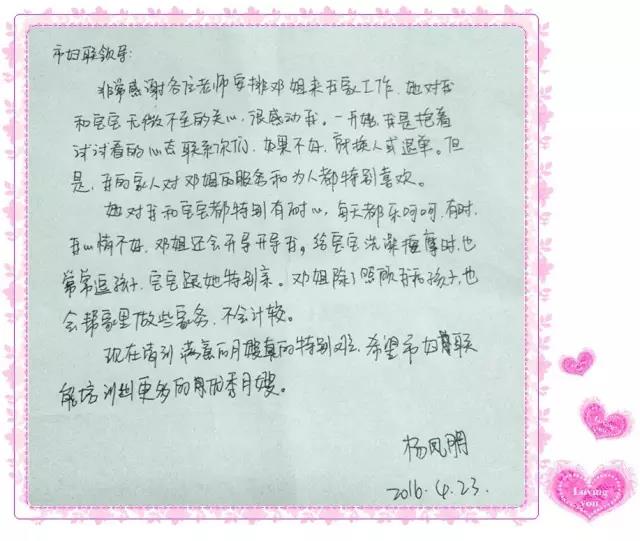 市妇联领导:
非常感谢各位老师安排邓姐来我家工作,她对我
和宝宝无微不至的关心,很感动我。一开始,我是抱着
试试看的心去联系你们,如果不好,就换人或退单。但
是,我的家人对邓姐的服务和为人都特别喜欢。
她对我和宝宝都特别有耐心,每天都乐呵呵,有时,
我心情不好,邓姐还会开导开导我。给宝宝洗澡按摩时,也
常常逗孩子,宝宝跟她特别亲。邓姐除了照顾我和孩子,也
会帮家里做些家务,不会计较。
现在请到满意的月嫂真的特别难,希望市妇联
能培训出更多的优秀月嫂。
杨凤朋
2016.4.23.
Loving
you